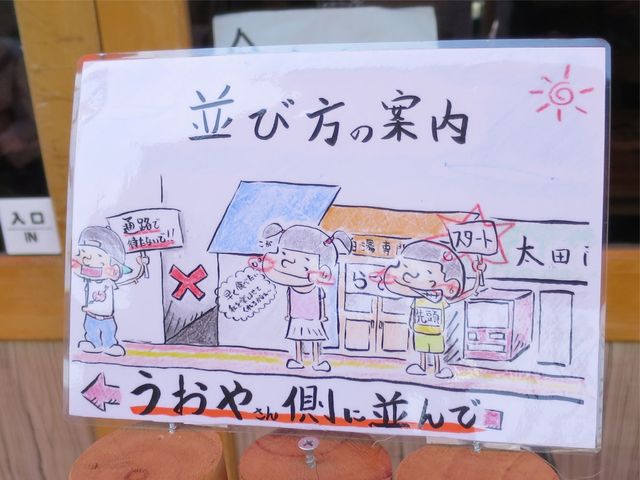 並び方の案内
入口
IN
通路で
待たないで!!
スタート
太田
白湯専門
ら
先頭
うおやさん側に並んで